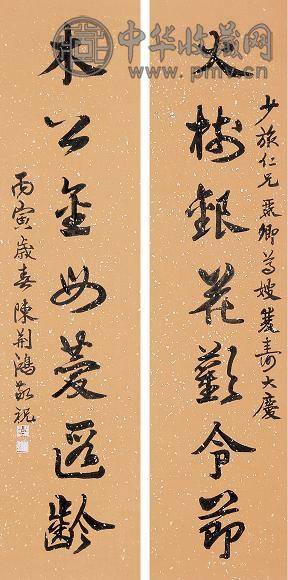 中华收藏网
少旅仁兄卿尊嫂雙壽大慶
火樹銀花歡令節
木公金母慶遐齡
丙寅歲春陳荊鴻敬祝